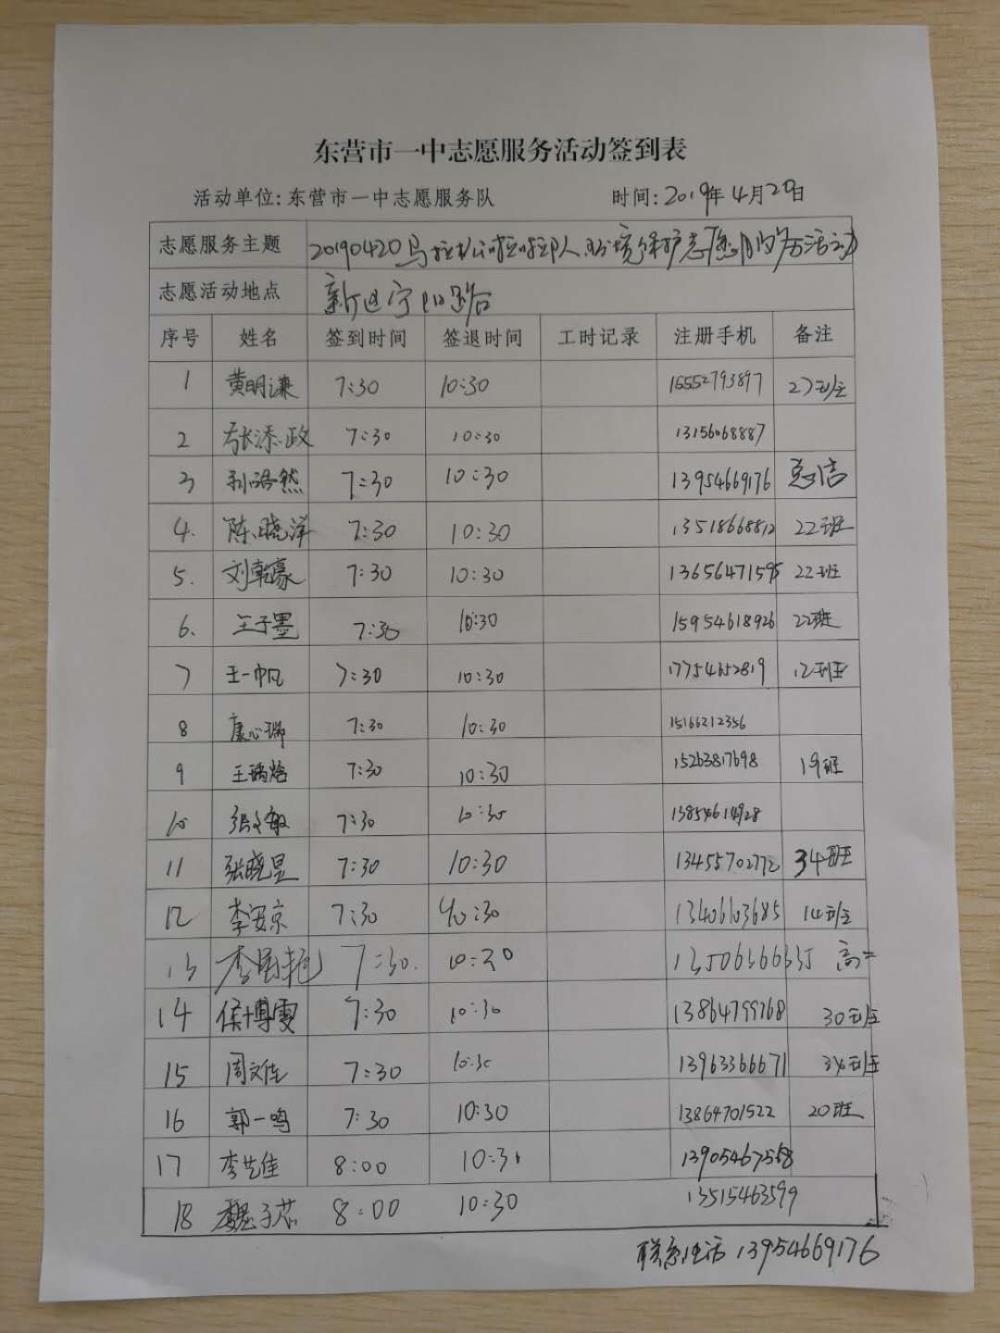 东营市一中志愿服务活动签到表
活动单位:东营市一中志愿服务队 时间:2019年4月20日
志愿服务主题 20190420乌拉拉人环境保护志愿服务活动
志愿活动地点 新区宁阳路
序号 姓名 签到时间 签退时间 工时记录 注册手机 备注
1 黄明谦 7:30 10:30 15552793897 27班
2 张添政 7:30 10:30 13156068887
3 孙浩然 7:30 10:30 13954669176 总结
4. 陈晓洋 7:30 10:30 13518668812 22班
5. 刘乾豪 7:30 10:30 13656471595 22班
6. 王子墨 7:30 10:30 15954618926 22班
7 王一帆 7:30 10:30 17754652819 12班
8 康心瑞 7:30 10:30 15166212356
9 王瑀焓 7:30 10:30 15263817698 19班
10 张文敏 7:30 10:30 13854614928
11 张晓昱 7:30 10:30 13455702772 34班
12 李安京 7:30 10:30 13406103685 14班
13 李 7:30. 10:30 高
14 侯博雯 7:30 10:30 13864799768 30班
15 周文佳 7:30 10:30 13963366671 34班
16 郭一鸣 7:30 10:30 13864701522 20班
17 李艺佳 8:00 10:30 13905467568
18 魏子芯 8:00 10:30 13515463599
联系电话 13954669176